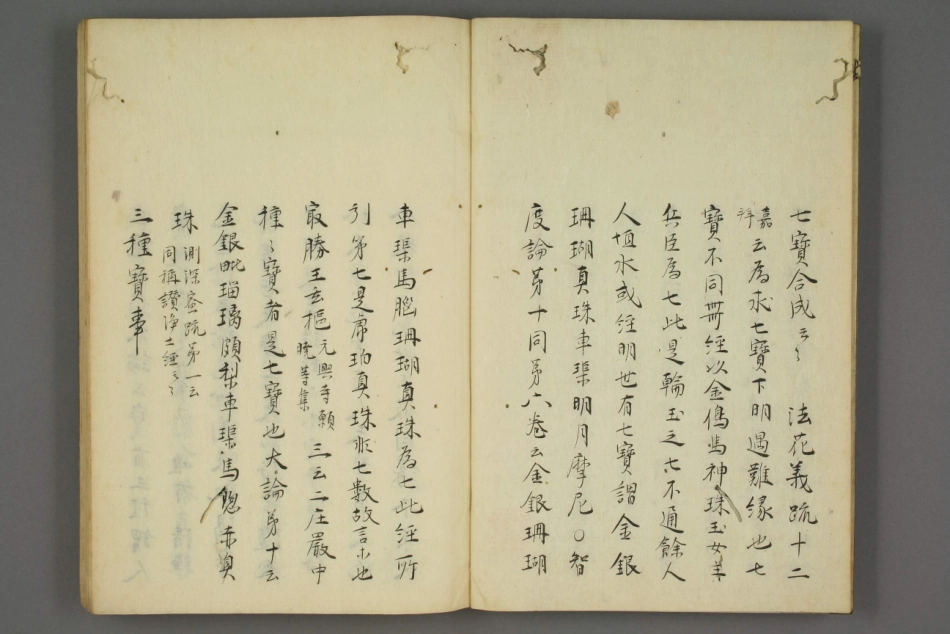 七寶合成云〻 法花義疏十二
嘉祥云為求七寶下明遇難緣也七
寶不同普經以金馬神珠玉女羊
兵臣為七此是輪王之七不通餘人
人恒水或經明世有七寶謂金銀
珊瑚真珠車渠明月摩尼〇智
度論第十同第八卷云金銀珊瑚
車渠馬腦珊瑚真珠為七此經所
引第七是虎珀真珠非七數故言尓也
最勝王玄樞元興寺願曉等集三云二庄嚴中
種〻寶者是七寶也大論第十云
金銀毗瑠璃頗梨車渠馬𢙣赤真
珠測深蜜疏第一云同稱讚淨土經云〻
三種寶事